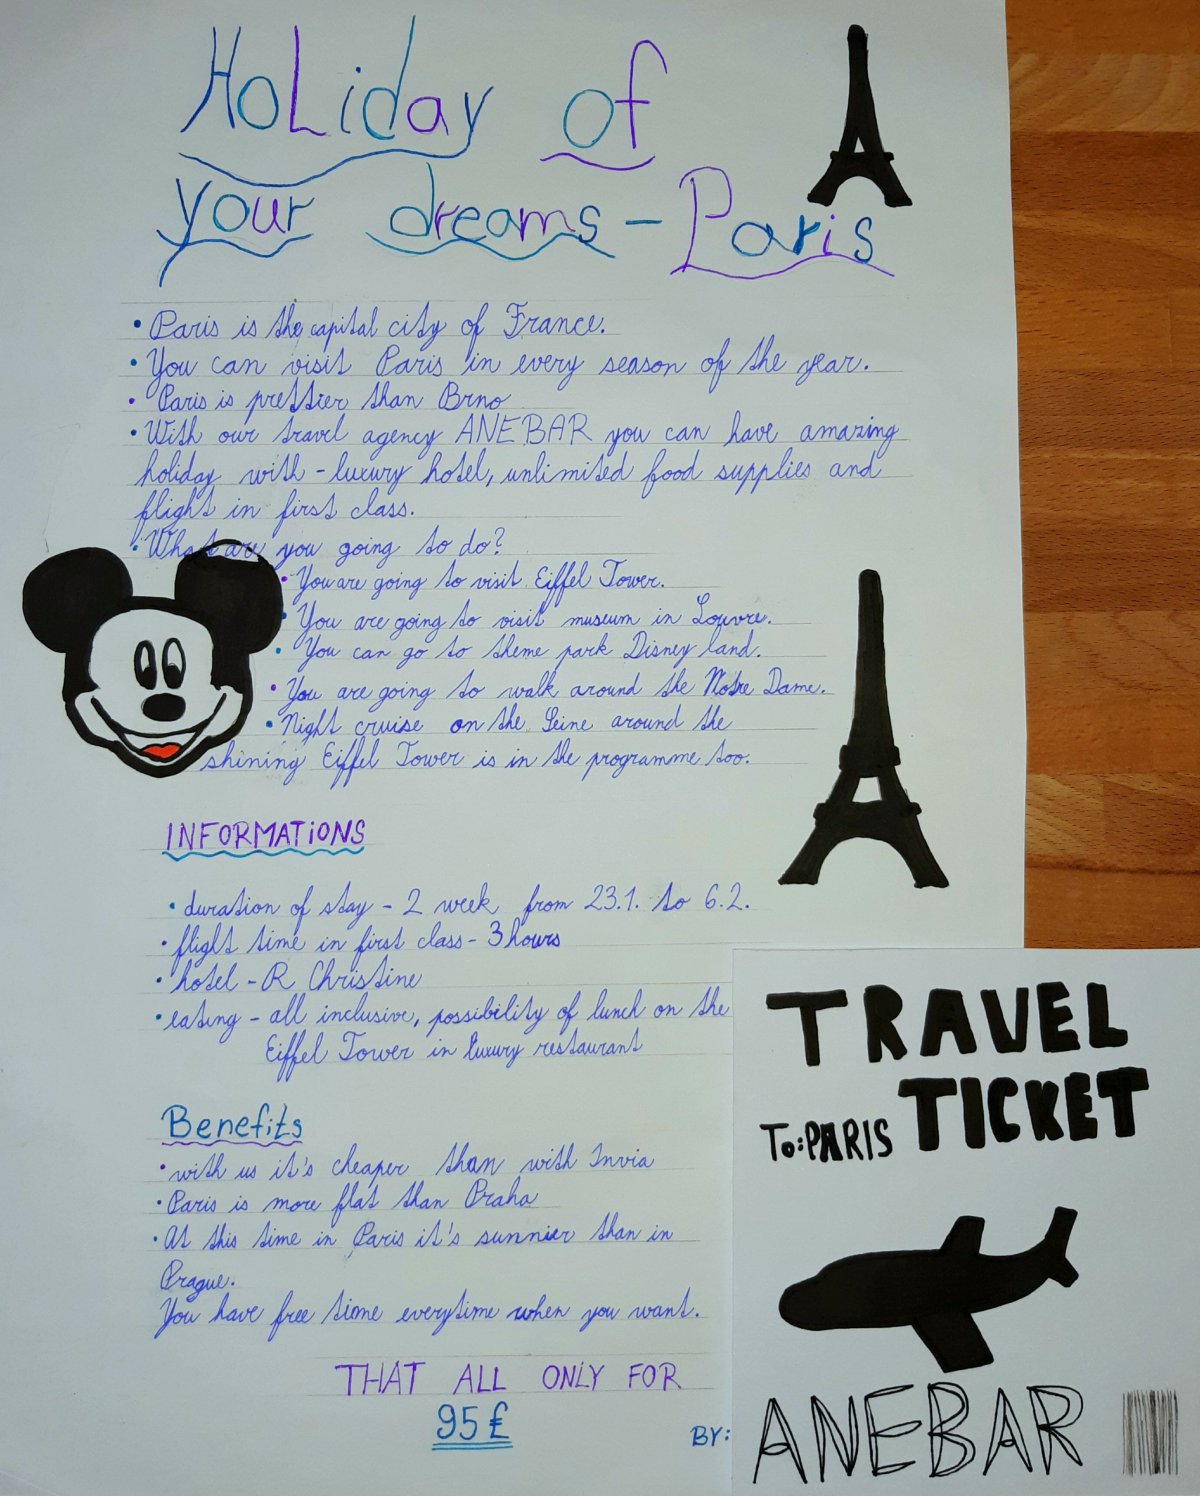 HoLiday of
your dreams - Paris
• Paris is the capital city of France.
• You can visit Paris in every season of the year.
• Paris is prettier than Brno
• With our travel agency ANEBAR you can have amazing
holiday with - luxury hotel, unlimited food supplies and
flight in first class.
• What are you going to do?
• You are going to visit Eiffel Tower.
• You are going to visit museum in Louvre.
• You can go to theme park Disney land.
• You are going to walk around the Notre Dame.
• Night cruise on the Seine around the
shining Eiffel Tower is in the programme too.
INFORMATIONS
• duration of stay - 2 week from 23.1. to 6.2.
• flight time in first class - 3 hours
• hotel - R Christine
• eating - all inclusive, possibility of lunch on the
Eiffel Tower in luxury restaurant
Benefits
• with us it's cheaper than with Invia
• Paris is more flat than Praha
• At this time in Paris it's sunnier than in
Prague.
You have free time everytime when you want.
THAT ALL ONLY FOR
95 £
BY:
TRAVEL
TICKET
To: PARIS
ANEBAR